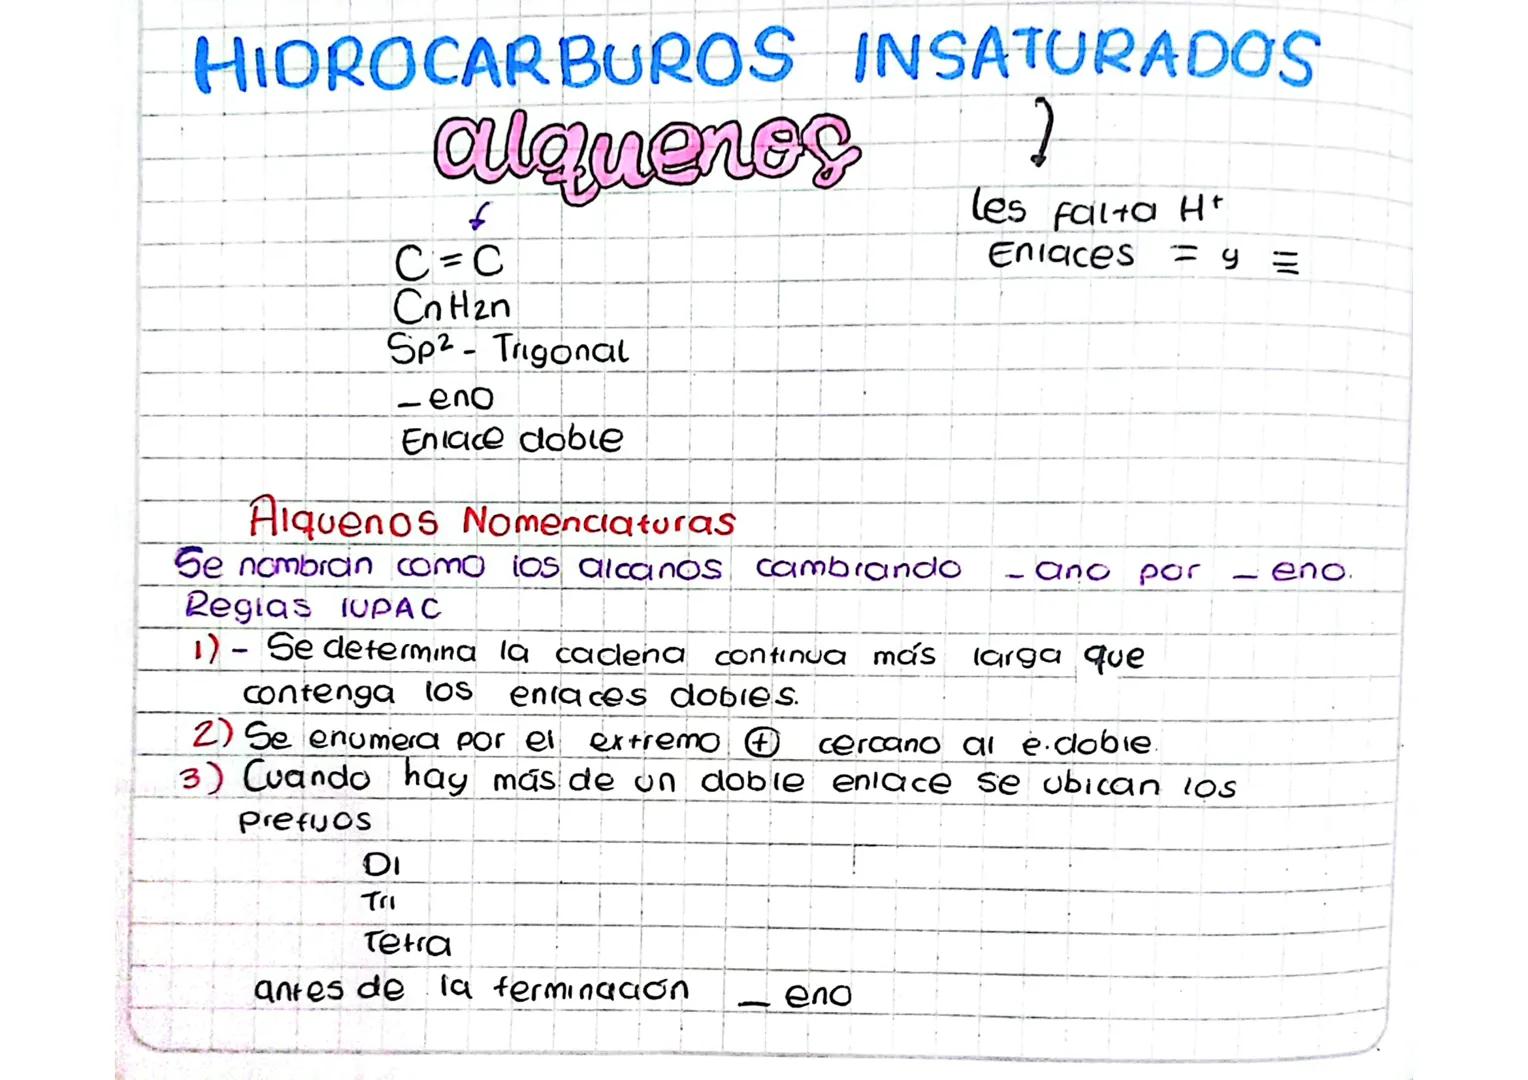 HIDROCARBUROS INSATURADOS
alquenos
les falta H+
Enlaces = y ≡
C = C
CnH2n
Sp² - Trigonal
_ eno
Enlace doble
Alquenos Nomenclaturas
Se nombran como los alcanos cambiando _ ano por _ eno.
Reglas IUPAC
1) - Se determina la cadena continua más larga que
contenga los enlaces dobles.
2) Se enumera por el extremo ⊕ cercano al e.doble.
3) Cuando hay más de un doble enlace se ubican los
prefijos
Di
Tri
Tetra
antes de la terminación _ eno